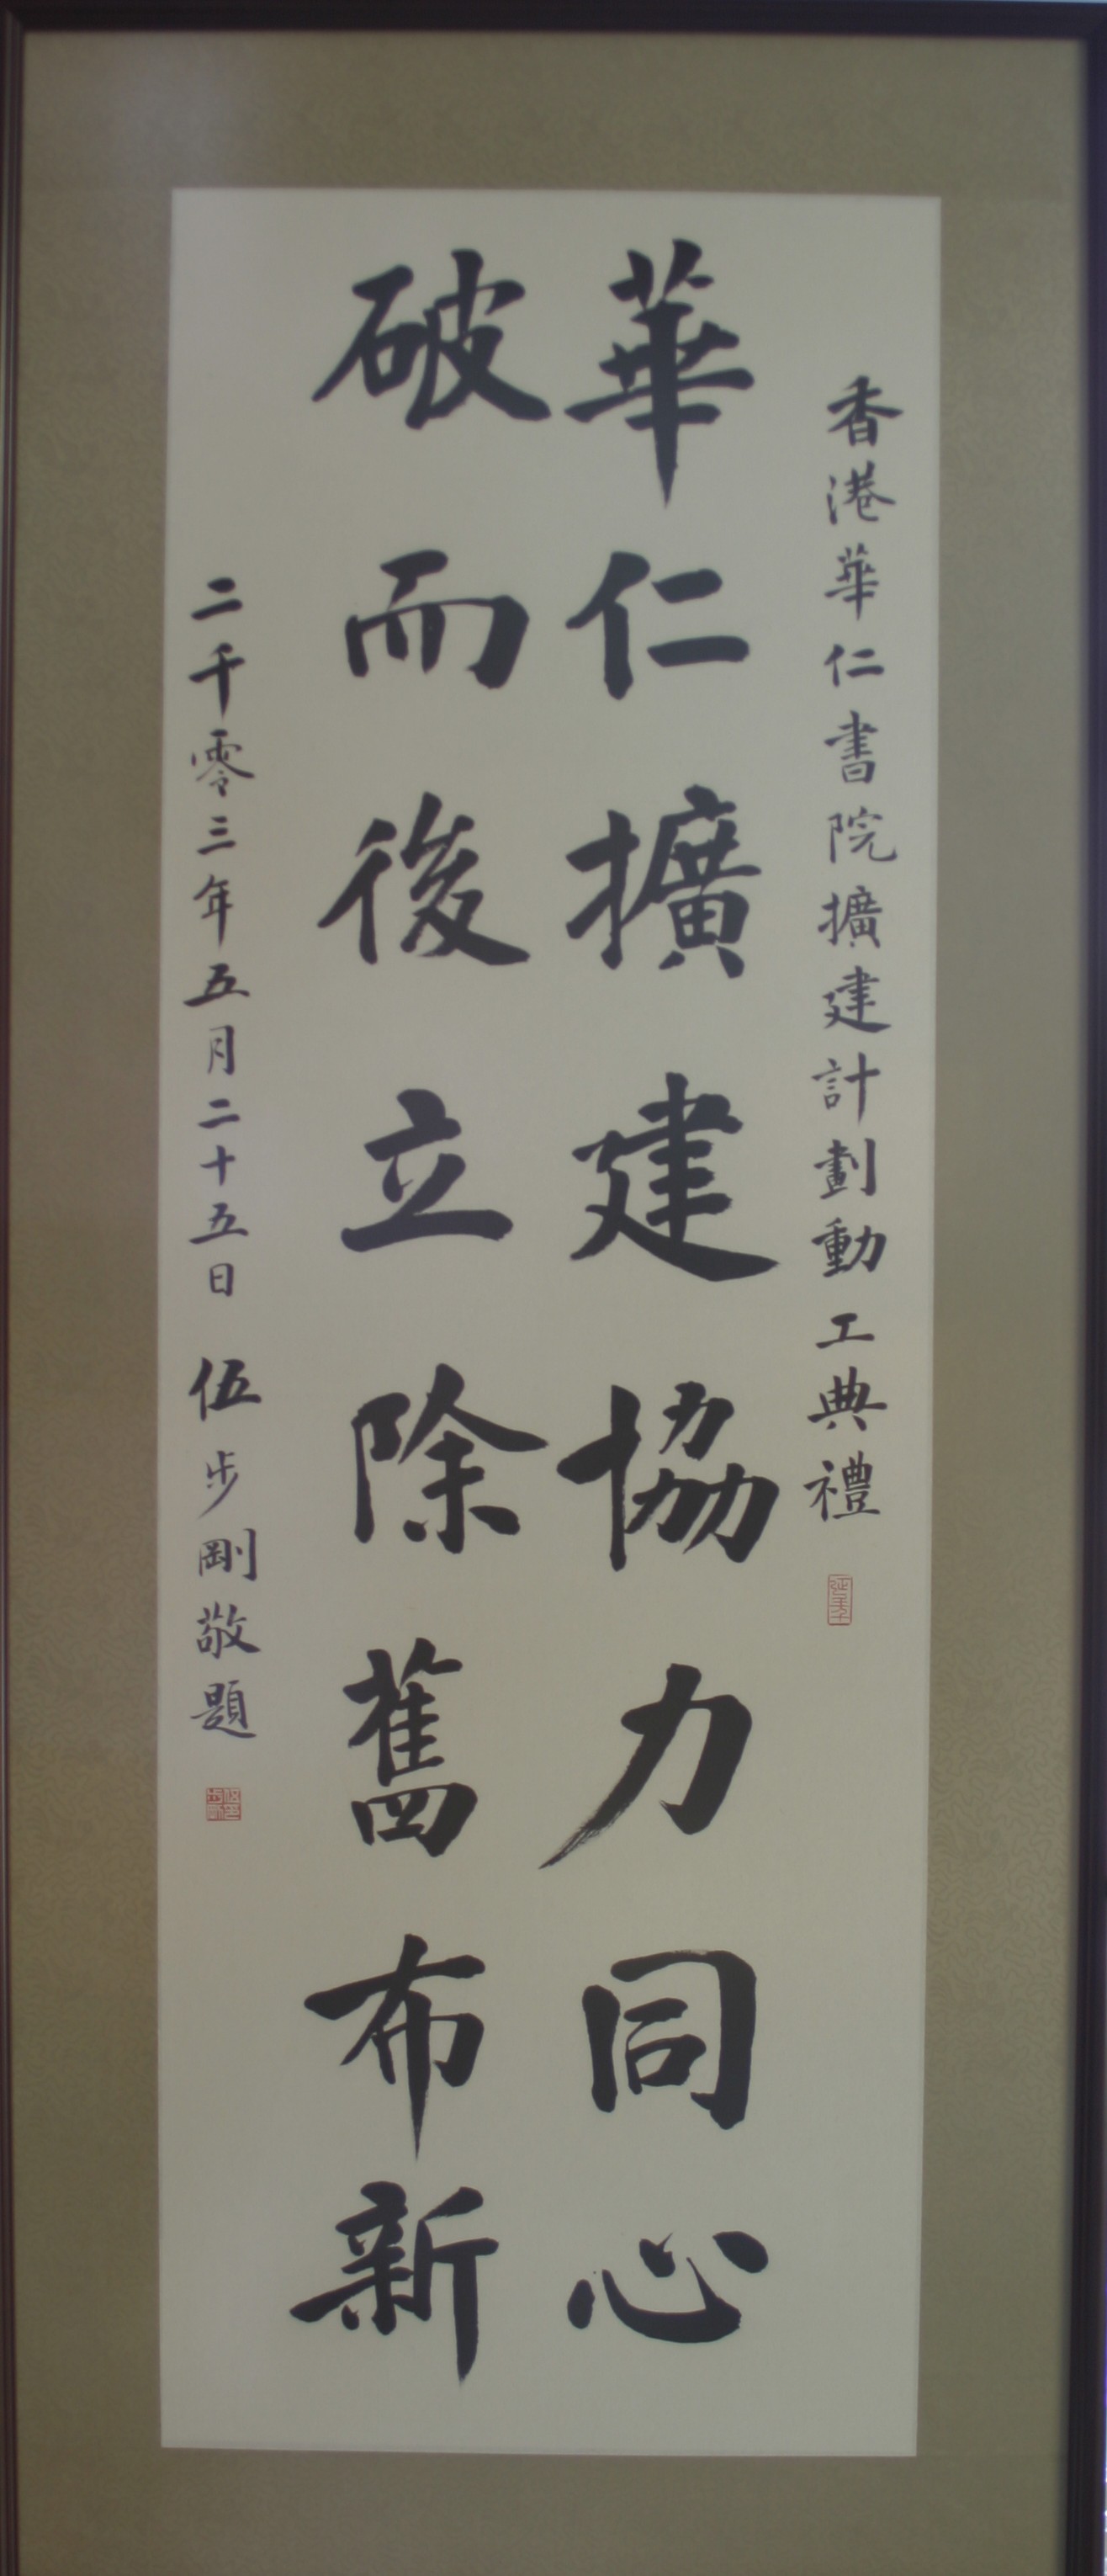 香港華仁書院擴建計劃動工典禮
華仁擴建協力同心
破而後立除舊布新
二千零三年五月二十五日 伍步剛敬題